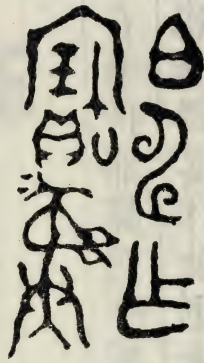 白乍
寶彝